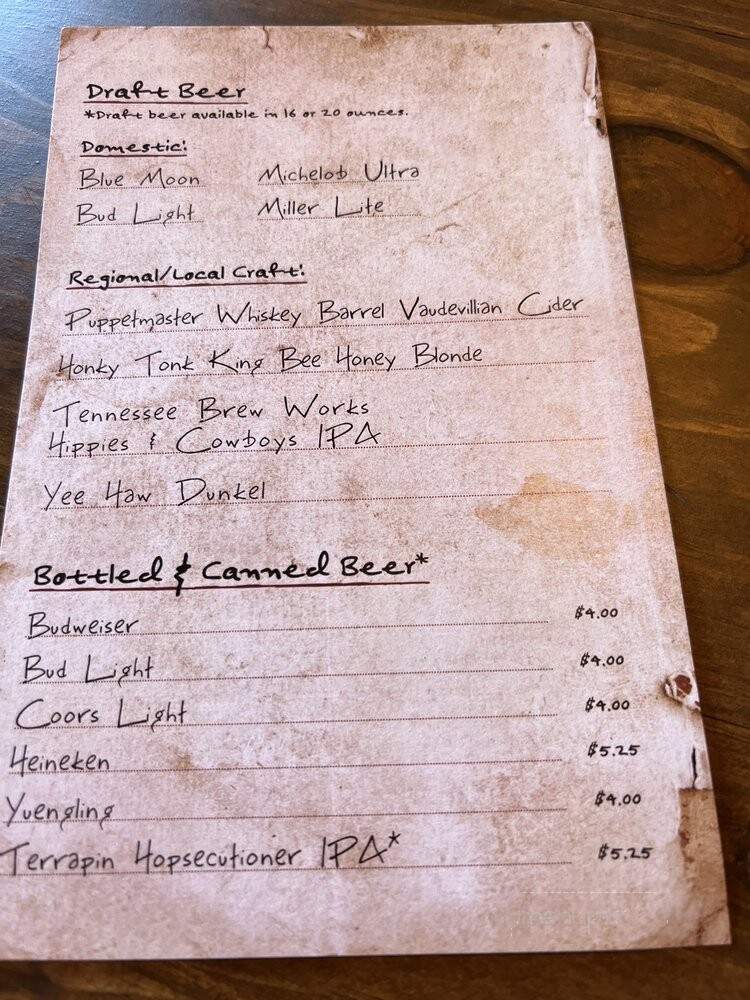 Draft Beer
*Draft beer available in 16 or 20 ounces.
Domestic:
Blue Moon Michelob Ultra
Bud Light Miller Lite
Regional/Local Craft:
Puppetmaster Whiskey Barrel Vaudevillian Cider
Honky Tonk King Bee Honey Blonde
Tennessee Brew Works
Hippies & Cowboys IPA
Yee Haw Dunkel
Bottled & Canned Beer*
Budweiser $4.00
Bud Light $4.00
Coors Light $4.00
Heineken $5.25
Yuengling $4.00
Terrapin Hopsecutioner IPA* $5.25